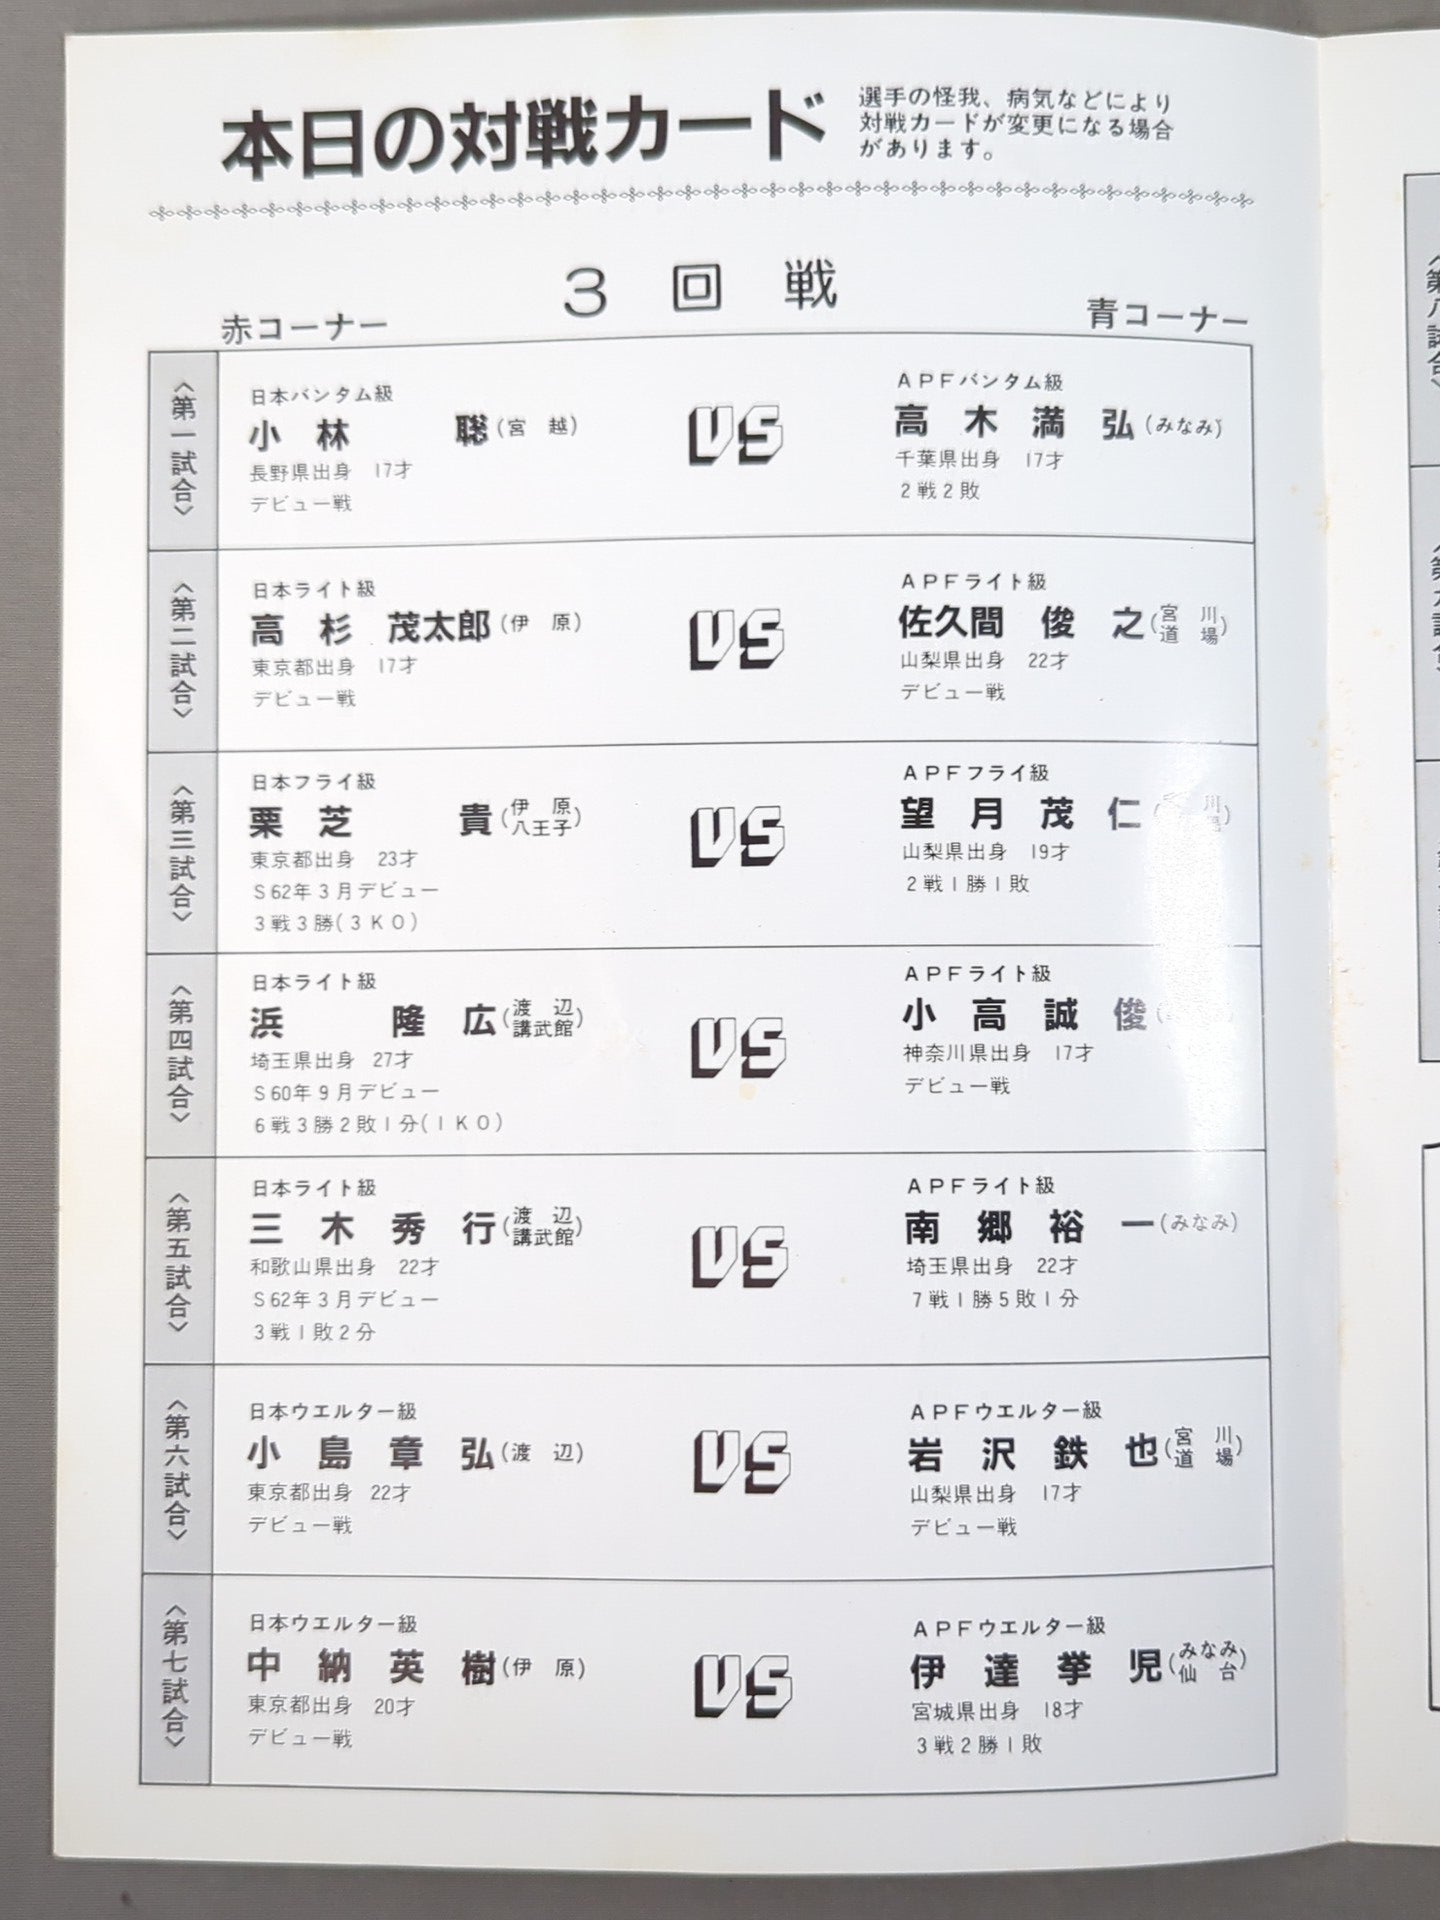 本日の対戦カード
選手の怪我、病気などにより
対戦カードが変更になる場合
があります。
3回戦
赤コーナー
青コーナー
〈第一試合〉
日本バンタム級
小林 聡(宮越)
長野県出身 17才
デビュー戦
VS
APFバンタム級
高木満弘(みなみ)
千葉県出身 17才
2戦2敗
〈第二試合〉
日本ライト級
高杉 茂太郎(伊原)
東京都出身 17才
デビュー戦
VS
APFライト級
佐久間 俊之(宮川道場)
山梨県出身 22才
デビュー戦
〈第三試合〉
日本フライ級
栗芝 貴(伊原八王子)
東京都出身 23才
S62年3月デビュー
3戦3勝(3KO)
VS
APFフライ級
望月茂仁
山梨県出身 19才
2戦1勝1敗
〈第四試合〉
日本ライト級
浜 隆広(渡辺講武館)
埼玉県出身 27才
S60年9月デビュー
6戦3勝2敗1分(1KO)
VS
APFライト級
小高誠俊
神奈川県出身 17才
デビュー戦
〈第五試合〉
日本ライト級
三木秀行(渡辺講武館)
和歌山県出身 22才
S62年3月デビュー
3戦1敗2分
VS
APFライト級
南郷裕一(みなみ)
埼玉県出身 22才
7戦1勝5敗1分
〈第六試合〉
日本ウエルター級
小島章弘(渡辺)
東京都出身 22才
デビュー戦
VS
APFウエルター級
岩沢鉄也(宮川道場)
山梨県出身 17才
デビュー戦
〈第七試合〉
日本ウエルター級
中納英樹(伊原)
東京都出身 20才
デビュー戦
VS
APFウエルター級
伊達挙児(みなみ仙台)
宮城県出身 18才
3戦2勝1敗
〈第八試合〉